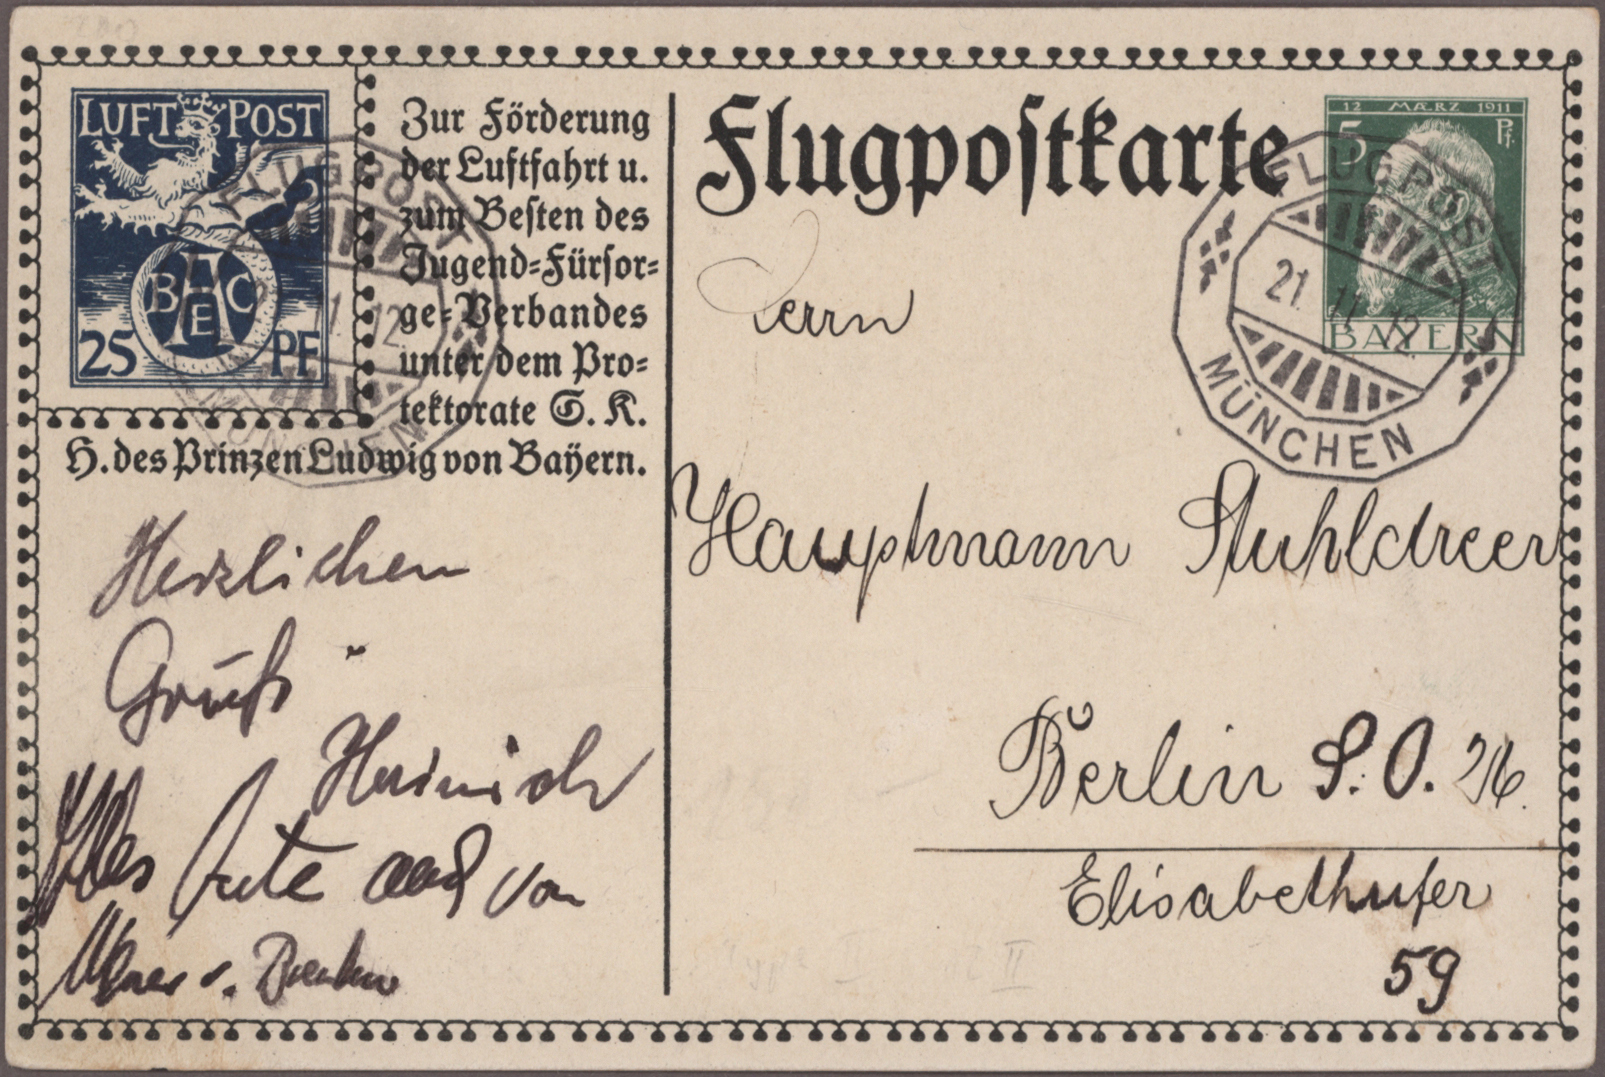 LUFT POST
BAEC
25 PF
Zur Förderung
der Luftfahrt u.
zum Besten des
Jugend=Fürsor=
ge=Verbandes
unter dem Pro=
tektorate S. K.
H. des Prinzen Ludwig von Bayern.
FLUGPOST
MÜNCHEN
Flugpostkarte
12 MÆRZ 1911
5 Pf.
BAYERN
FLUGPOST
21. 11. 12.
MÜNCHEN
Herrn
Hauptmann Stuhldreer
Berlin S.O. 26.
Elisabethufer
59
Herzlichen
Gruß
Heinrich
Alles Gute auch von